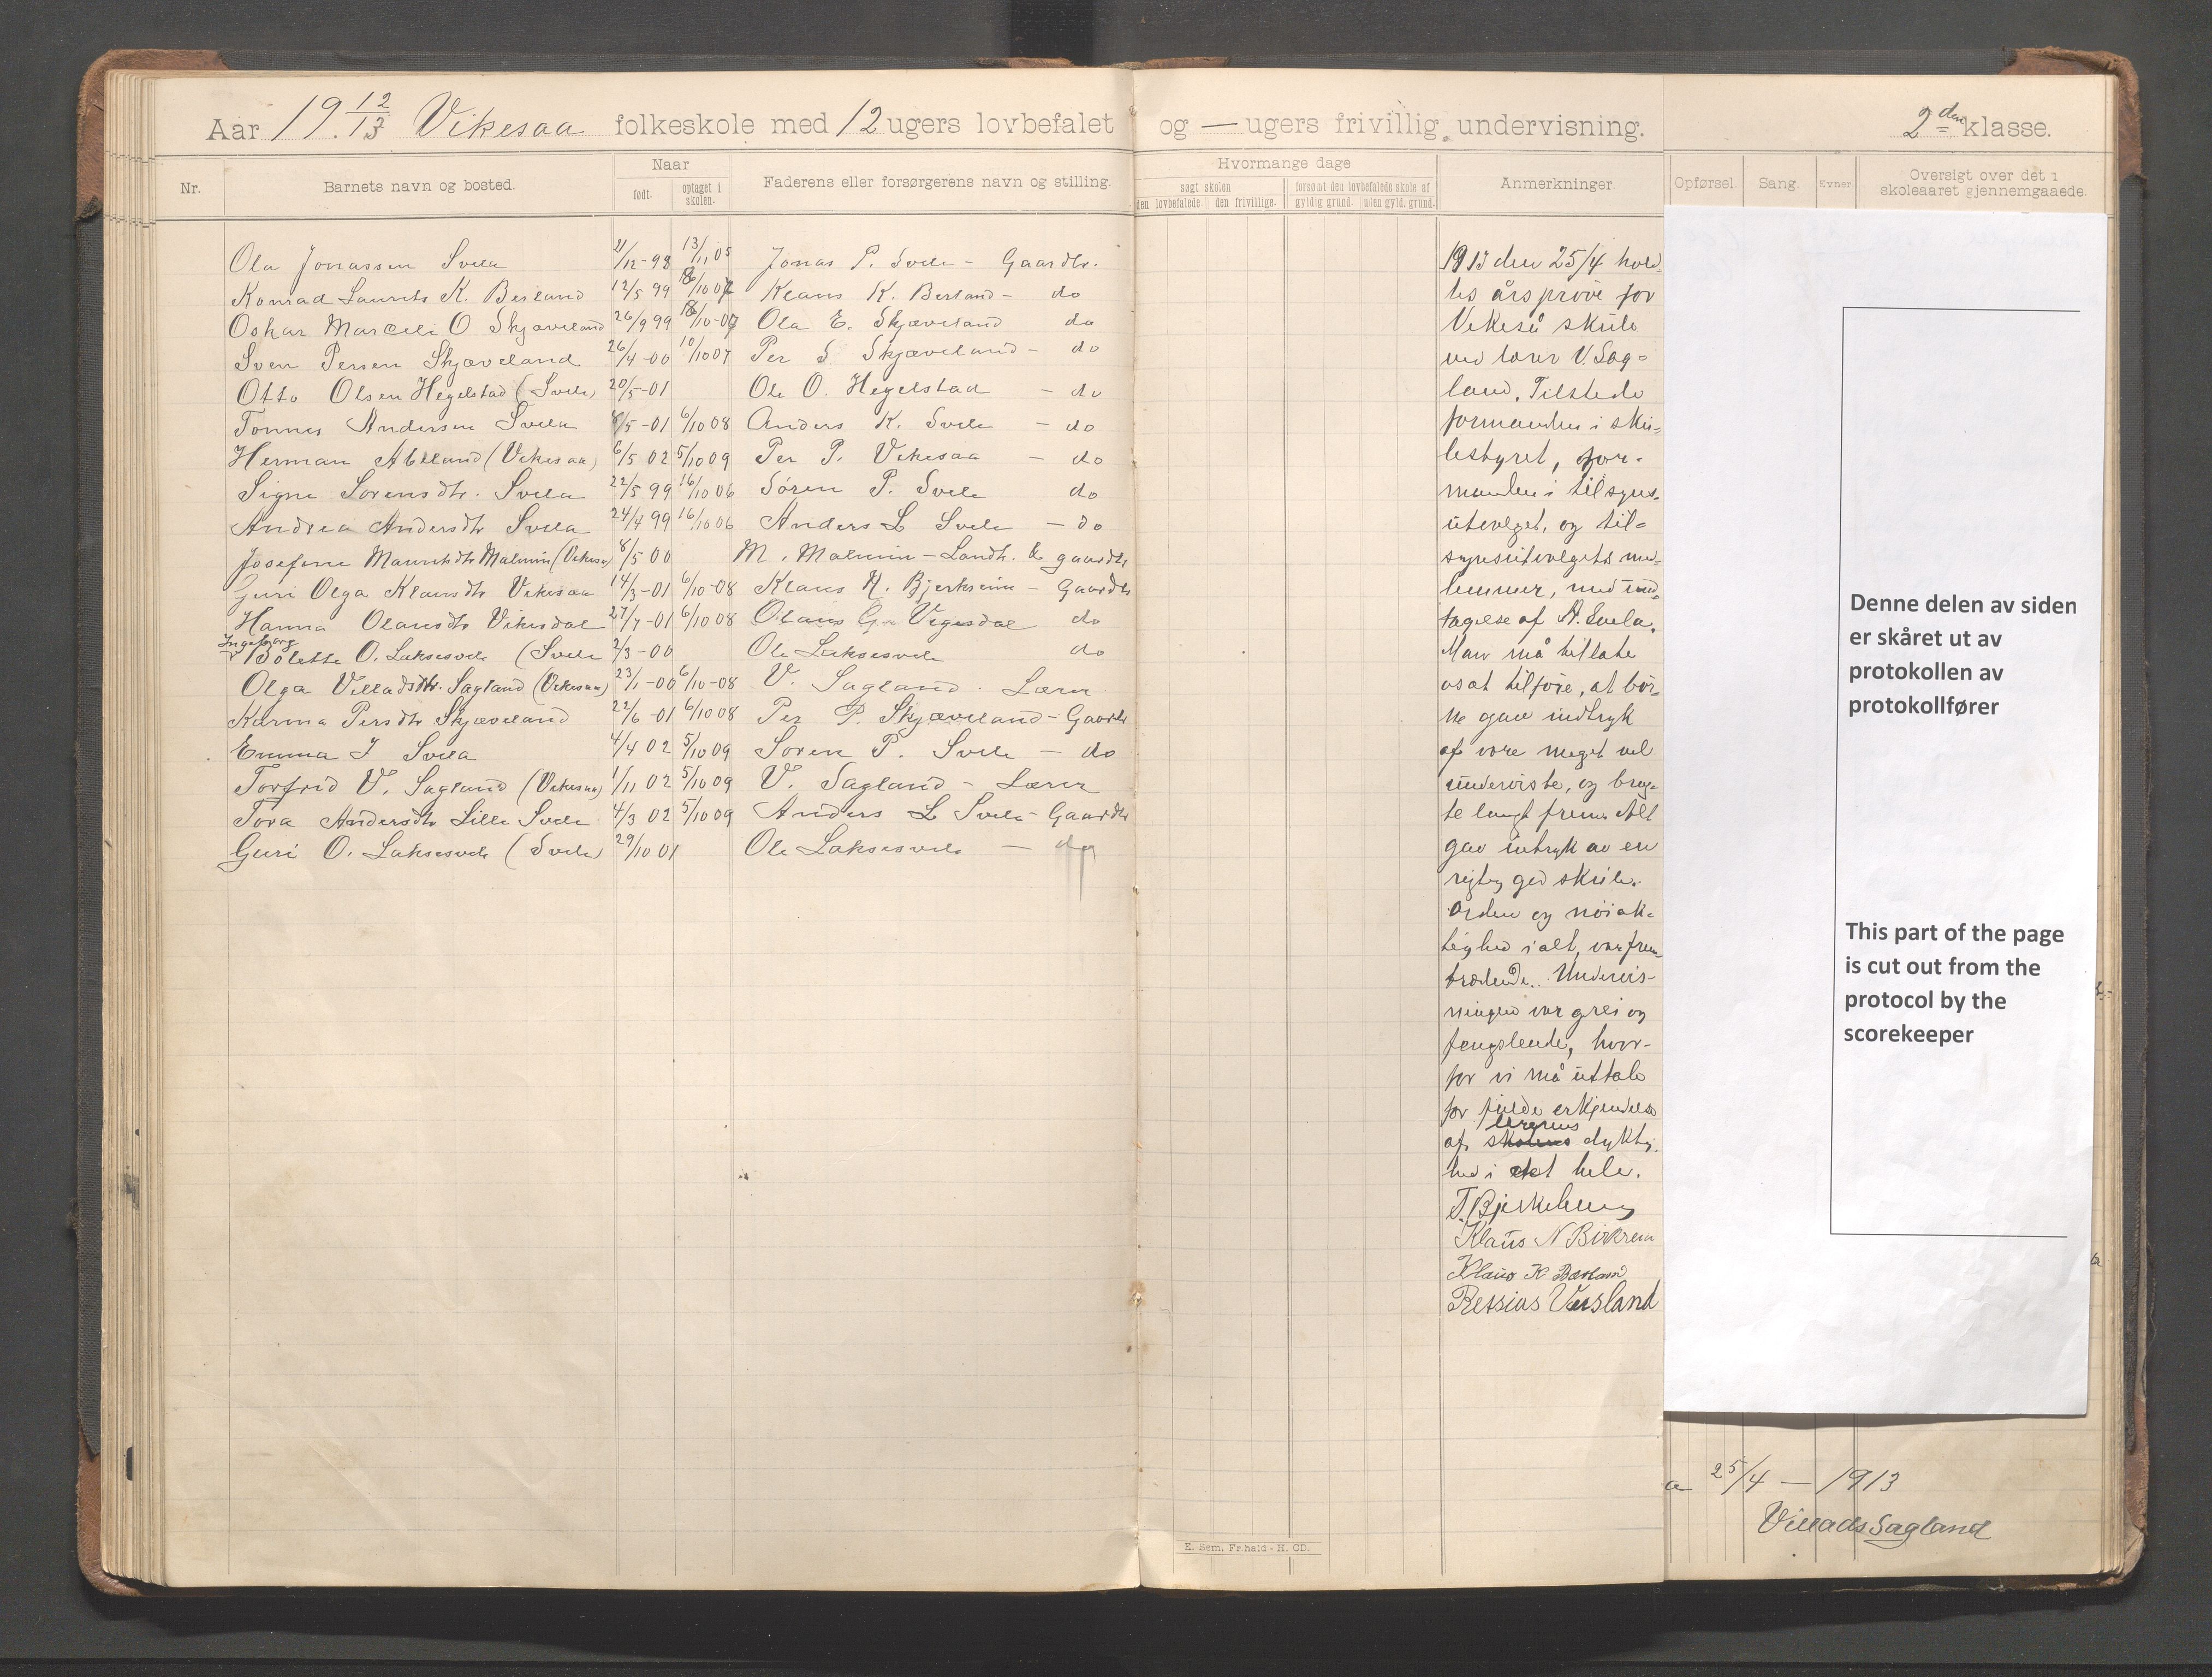 Aar 19.12/13 Vikesaa folkeskole med 12 ugers lovbefalet og — ugers frivillig undervisning. 2den klasse.
Nr. Barnets navn og bosted. Naar født. optaget i skolen. Faderens eller forsørgerens navn og stilling.
Hvormange dage søgt skolen den lovbefalede. den frivillige. forsømt den lovbefalede skole af gyldig grund. uden gyld. grund. Anmerkninger. Opførsel. Sang. Evner. Oversigt over det i skoleaaret gjennemgaaede.
Ola Jonassen Svela 21/12-98 13/11 05 Jonas P. Svele - Gaardbr.
Konrad Laurits K. Berland 12/5 99 Klaus K. Berland - do
Oskar Marceli O. Skjæveland 26/9 99 Ola E. Skjæveland do
Sven Persen Skjæveland 26/4-00 10/10 07 Per S Skjæveland - do
Otto Olsen Hegelstad (Svele) 20/5-01 Ole O. Hegelstad - do
Tønnes Andersen Svela 8/5-01 6/10 08 Anders K. Svele - do
Herman Abeland (Vikesaa) 6/5 02 5/10 09 Per P. Vikesaa - do
Signe Sørensdtr. Svela 22/5 99 16/10 06 Sören P. Svele do
Andrea Andersdtr Svela 24/4 99 16/10 06 Anders L Svele - do
Josefine Mauritsdtr Malmin (Vikesaa) 8/5 00 M. Malmin - Landh. & gaardbr
Guri Olga Klausdtr Vikesaa 14/3-01 6/10-08 Klaus N. Bjerkreim - Gaardbr
Hanna Olausdtr Vikesdal 27/7-01 6/10 08 Olaus G. Vigesdal do
Ingeborg
Bolette O. Laksesvele (Svele 2/3-00 Ole Laksesvele do
Olga Villadsdtr. Sagland (Vikesaa) 23/1-00 6/10-08 V. Sagland. Lærer
Karina Persdtr Skjæveland 22/6-01 6/10 08 Per P. Skjæveland - Gaardbr
Emma S Svela 4/4 02 5/10 09 Sören P. Svele - do
Torfrid V. Sagland (Vikesaa) 1/11 02 5/10 09 V. Sagland - Lærer
Tora Andersdtr Lille Svele 4/3 02 5/10 09 Anders L Svele - Gaardbr
Guri O. Laksesvele (Svele) 29/10 01 Ole Laksesvele - do
1913 den 25/4 hold-
tes årsprøve for
Vikeså skule
ved lærer V. Sag-
land. Tilstede
formanden i sku-
lestyret, for-
manden i tilsyns-
utvalget, og til-
synsutvalgets med-
lemmer, med und-
tagelse af A. Svela.
Man må tillate
os at tilføie, at bør-
ne gav indtryk
af være meget vel
underviste, og brag-
te langt frem. Alt
gav intryk av en
rigtig god skule.
Orden og nöiak-
tighed i alt, var frem-
trædende. Undervis-
ningen var grei og
fengslende, hvor-
for vi må uttale
for fulde erkjendelse
lærerens
af skolens dyktig-
hed i det hele.
T. Bjerkeheim
Klaus N Birkrem
Klaus K Bærland
Retsias Versland
Denne delen av siden
er skåret ut av
protokollen av
protokollfører
This part of the page
is cut out from the
protocol by the
scorekeeper
a 25/4 — 1913
Villads Sagland
E. Sem. Fr.hald - H. CD.